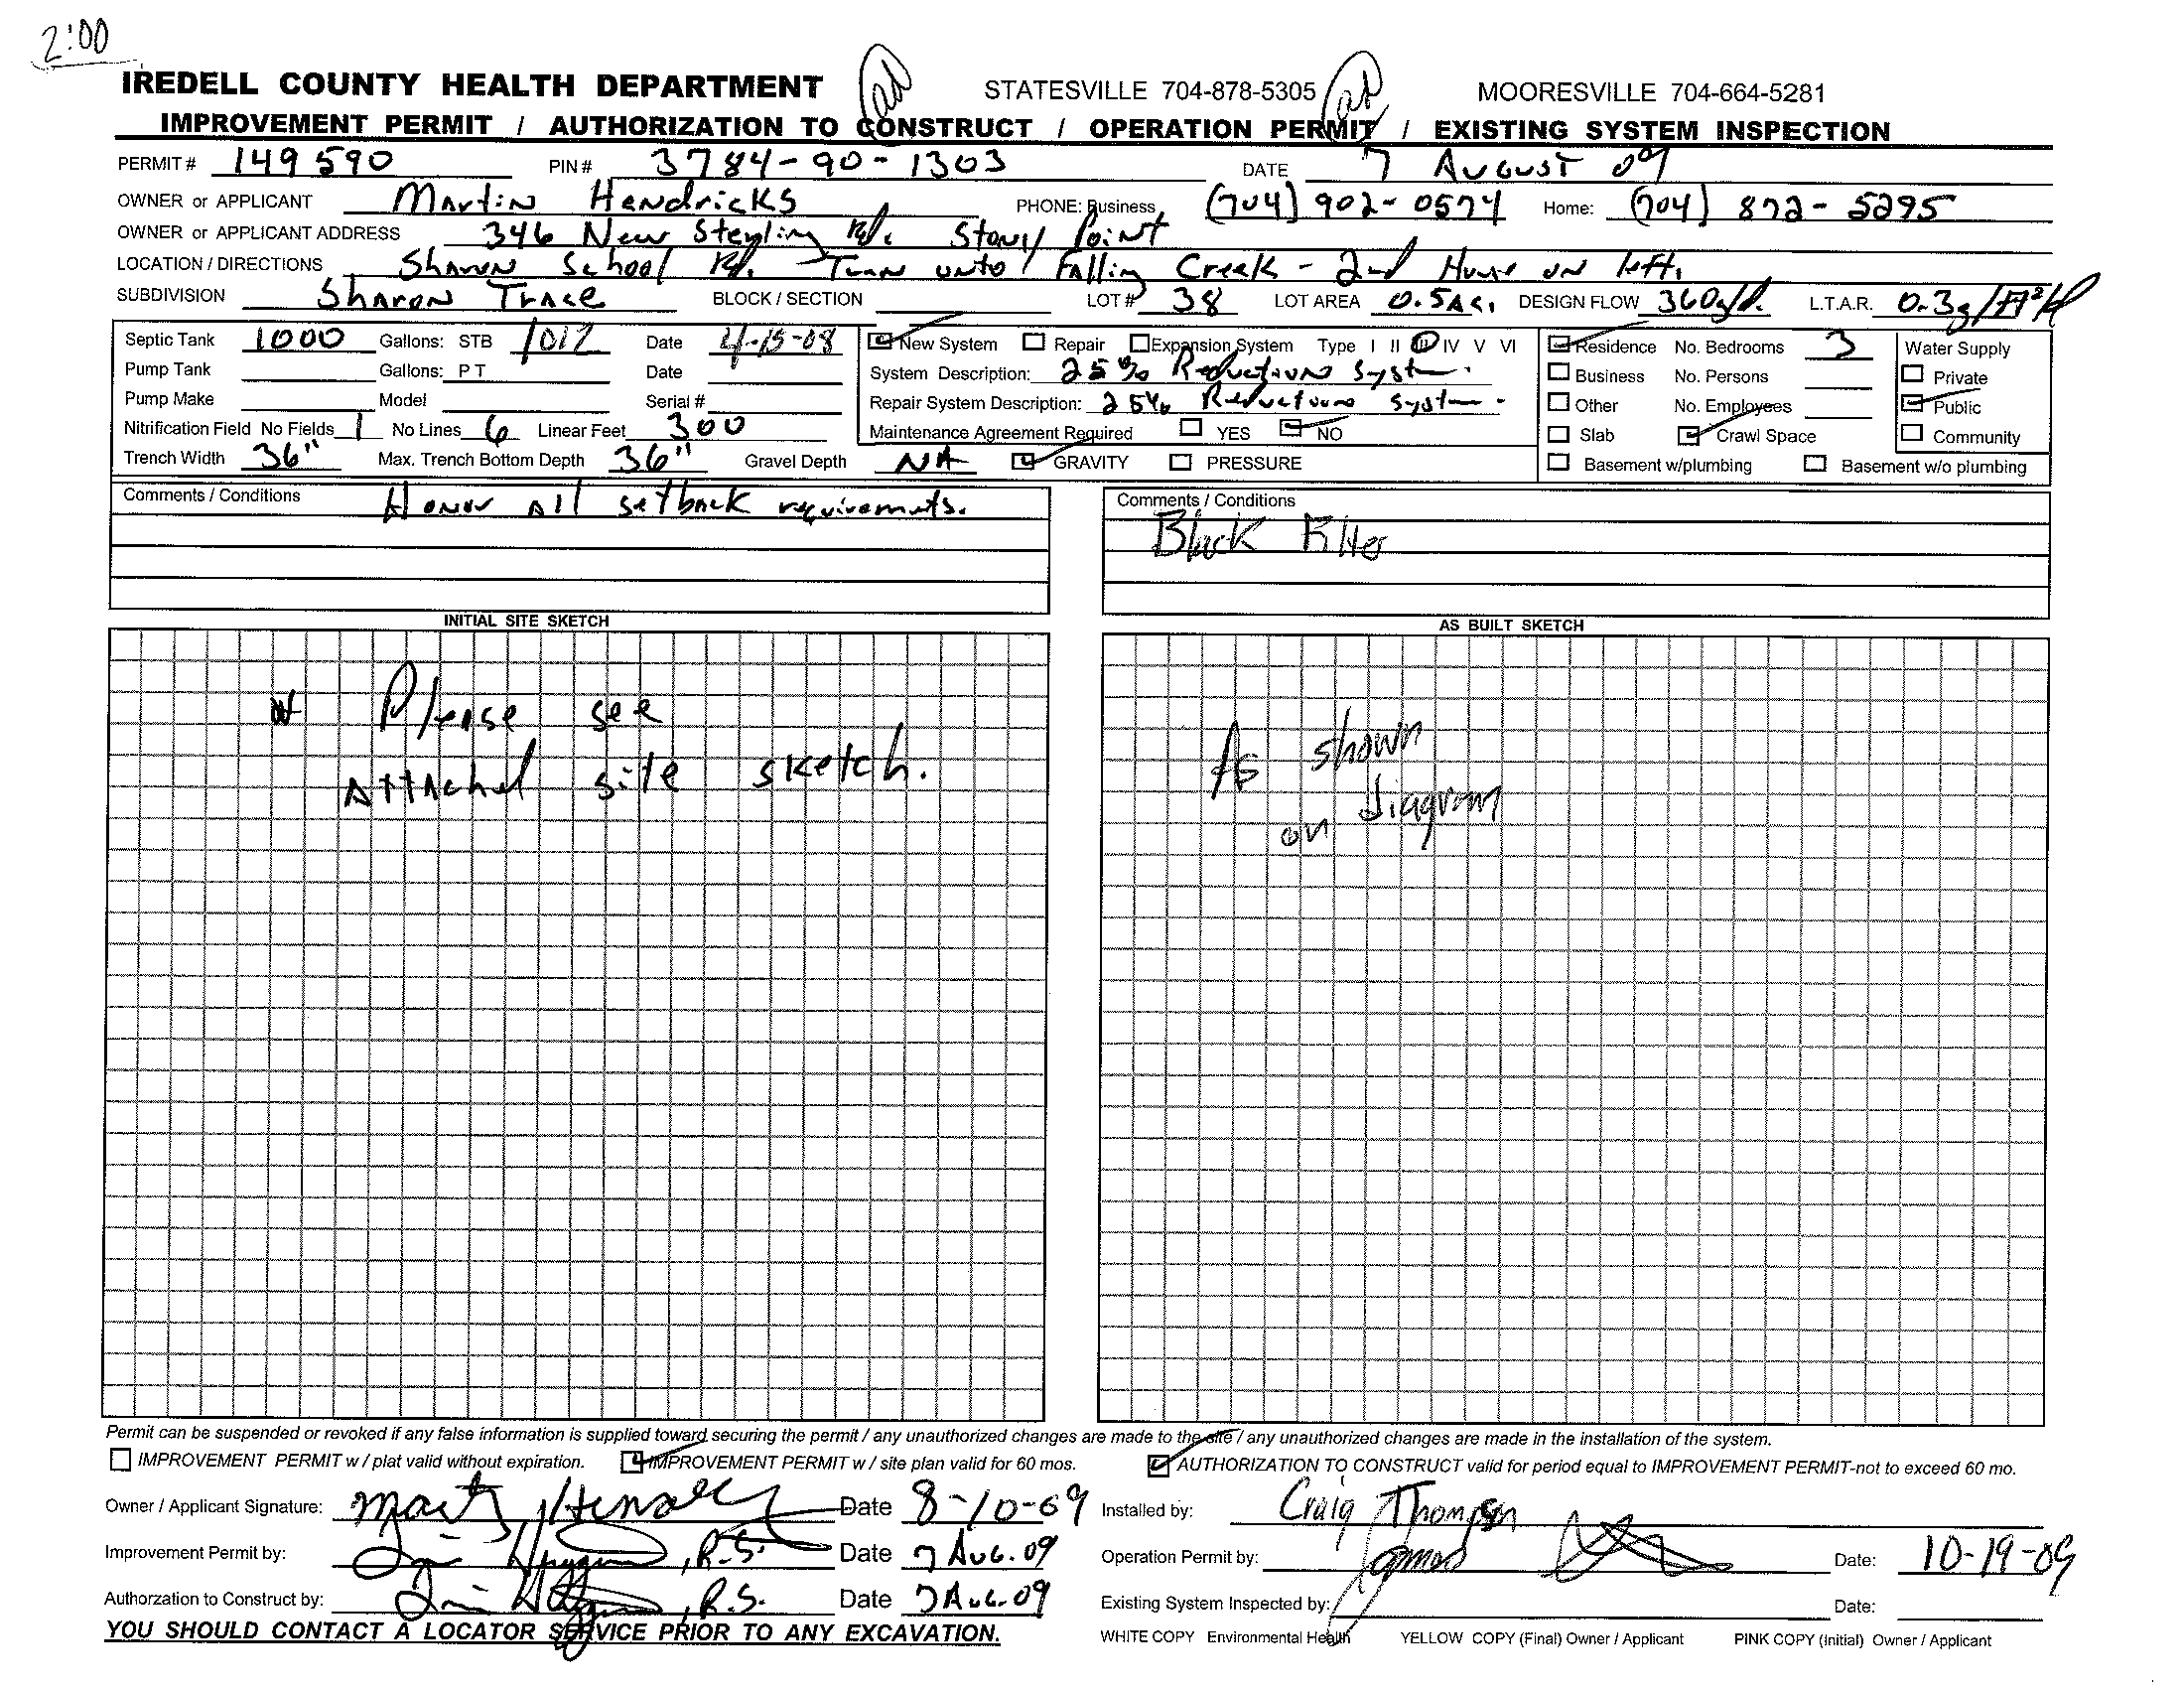 2:00
IREDELL COUNTY HEALTH DEPARTMENT STATESVILLE 704-878-5305 MOORESVILLE 704-664-5281
IMPROVEMENT PERMIT / AUTHORIZATION TO CONSTRUCT / OPERATION PERMIT / EXISTING SYSTEM INSPECTION
PERMIT # 149590 PIN # 3784-90-1303 DATE 7 August 09
OWNER or APPLICANT Martin Hendricks PHONE: Business (704) 902-0574 Home: (704) 872-5295
OWNER or APPLICANT ADDRESS 346 New Sterling Rd. Stony Point
LOCATION / DIRECTIONS Sharon School Rd. Turn unto Falling Creek - 2nd House on left.
SUBDIVISION Sharon Trace BLOCK / SECTION LOT # 38 LOT AREA 0.5 Ac. DESIGN FLOW 360g/d. L.T.A.R. 0.3g/ft²/d
Septic Tank 1000 Gallons: STB 1017 Date 4-15-08 New System Repair Expansion System Type I II III IV V VI Residence No. Bedrooms 3 Water Supply
Pump Tank Gallons: P T Date System Description: 25% Reduction System. Business No. Persons Private
Pump Make Model Serial # Repair System Description: 25% Reduction System. Other No. Employees Public
Nitrification Field No Fields 1 No Lines 6 Linear Feet 300 Maintenance Agreement Required YES NO Slab Crawl Space Community
Trench Width 36" Max. Trench Bottom Depth 36" Gravel Depth NA GRAVITY PRESSURE Basement w/plumbing Basement w/o plumbing
Comments / Conditions Honor all setback requirements. Comments / Conditions
Black Filter
INITIAL SITE SKETCH AS BUILT SKETCH
Please see
Attached site sketch.
As shown
on diagram
Permit can be suspended or revoked if any false information is supplied toward securing the permit / any unauthorized changes are made to the site / any unauthorized changes are made in the installation of the system.
IMPROVEMENT PERMIT w / plat valid without expiration. IMPROVEMENT PERMIT w / site plan valid for 60 mos. AUTHORIZATION TO CONSTRUCT valid for period equal to IMPROVEMENT PERMIT-not to exceed 60 mo.
Owner / Applicant Signature: Date 8-10-09 Installed by: Craig Thompson
Improvement Permit by: , R.S. Date 7 Aug. 09 Operation Permit by: Date: 10-19-09
Authorzation to Construct by: , R.S. Date 7 Aug. 09 Existing System Inspected by: Date:
YOU SHOULD CONTACT A LOCATOR SERVICE PRIOR TO ANY EXCAVATION. WHITE COPY Environmental Health YELLOW COPY (Final) Owner / Applicant PINK COPY (Initial) Owner / Applicant